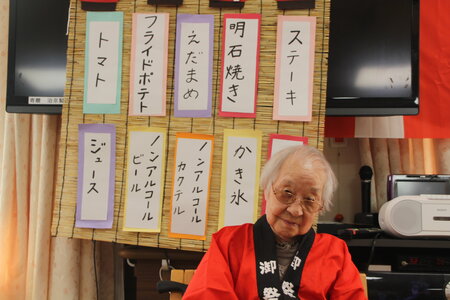 ステーキ
明石焼き
えだまめ
フライドポテト
トマト
かき氷
ノンアルコール
カクテル
ノンアルコール
ビール
ジュース
御祭